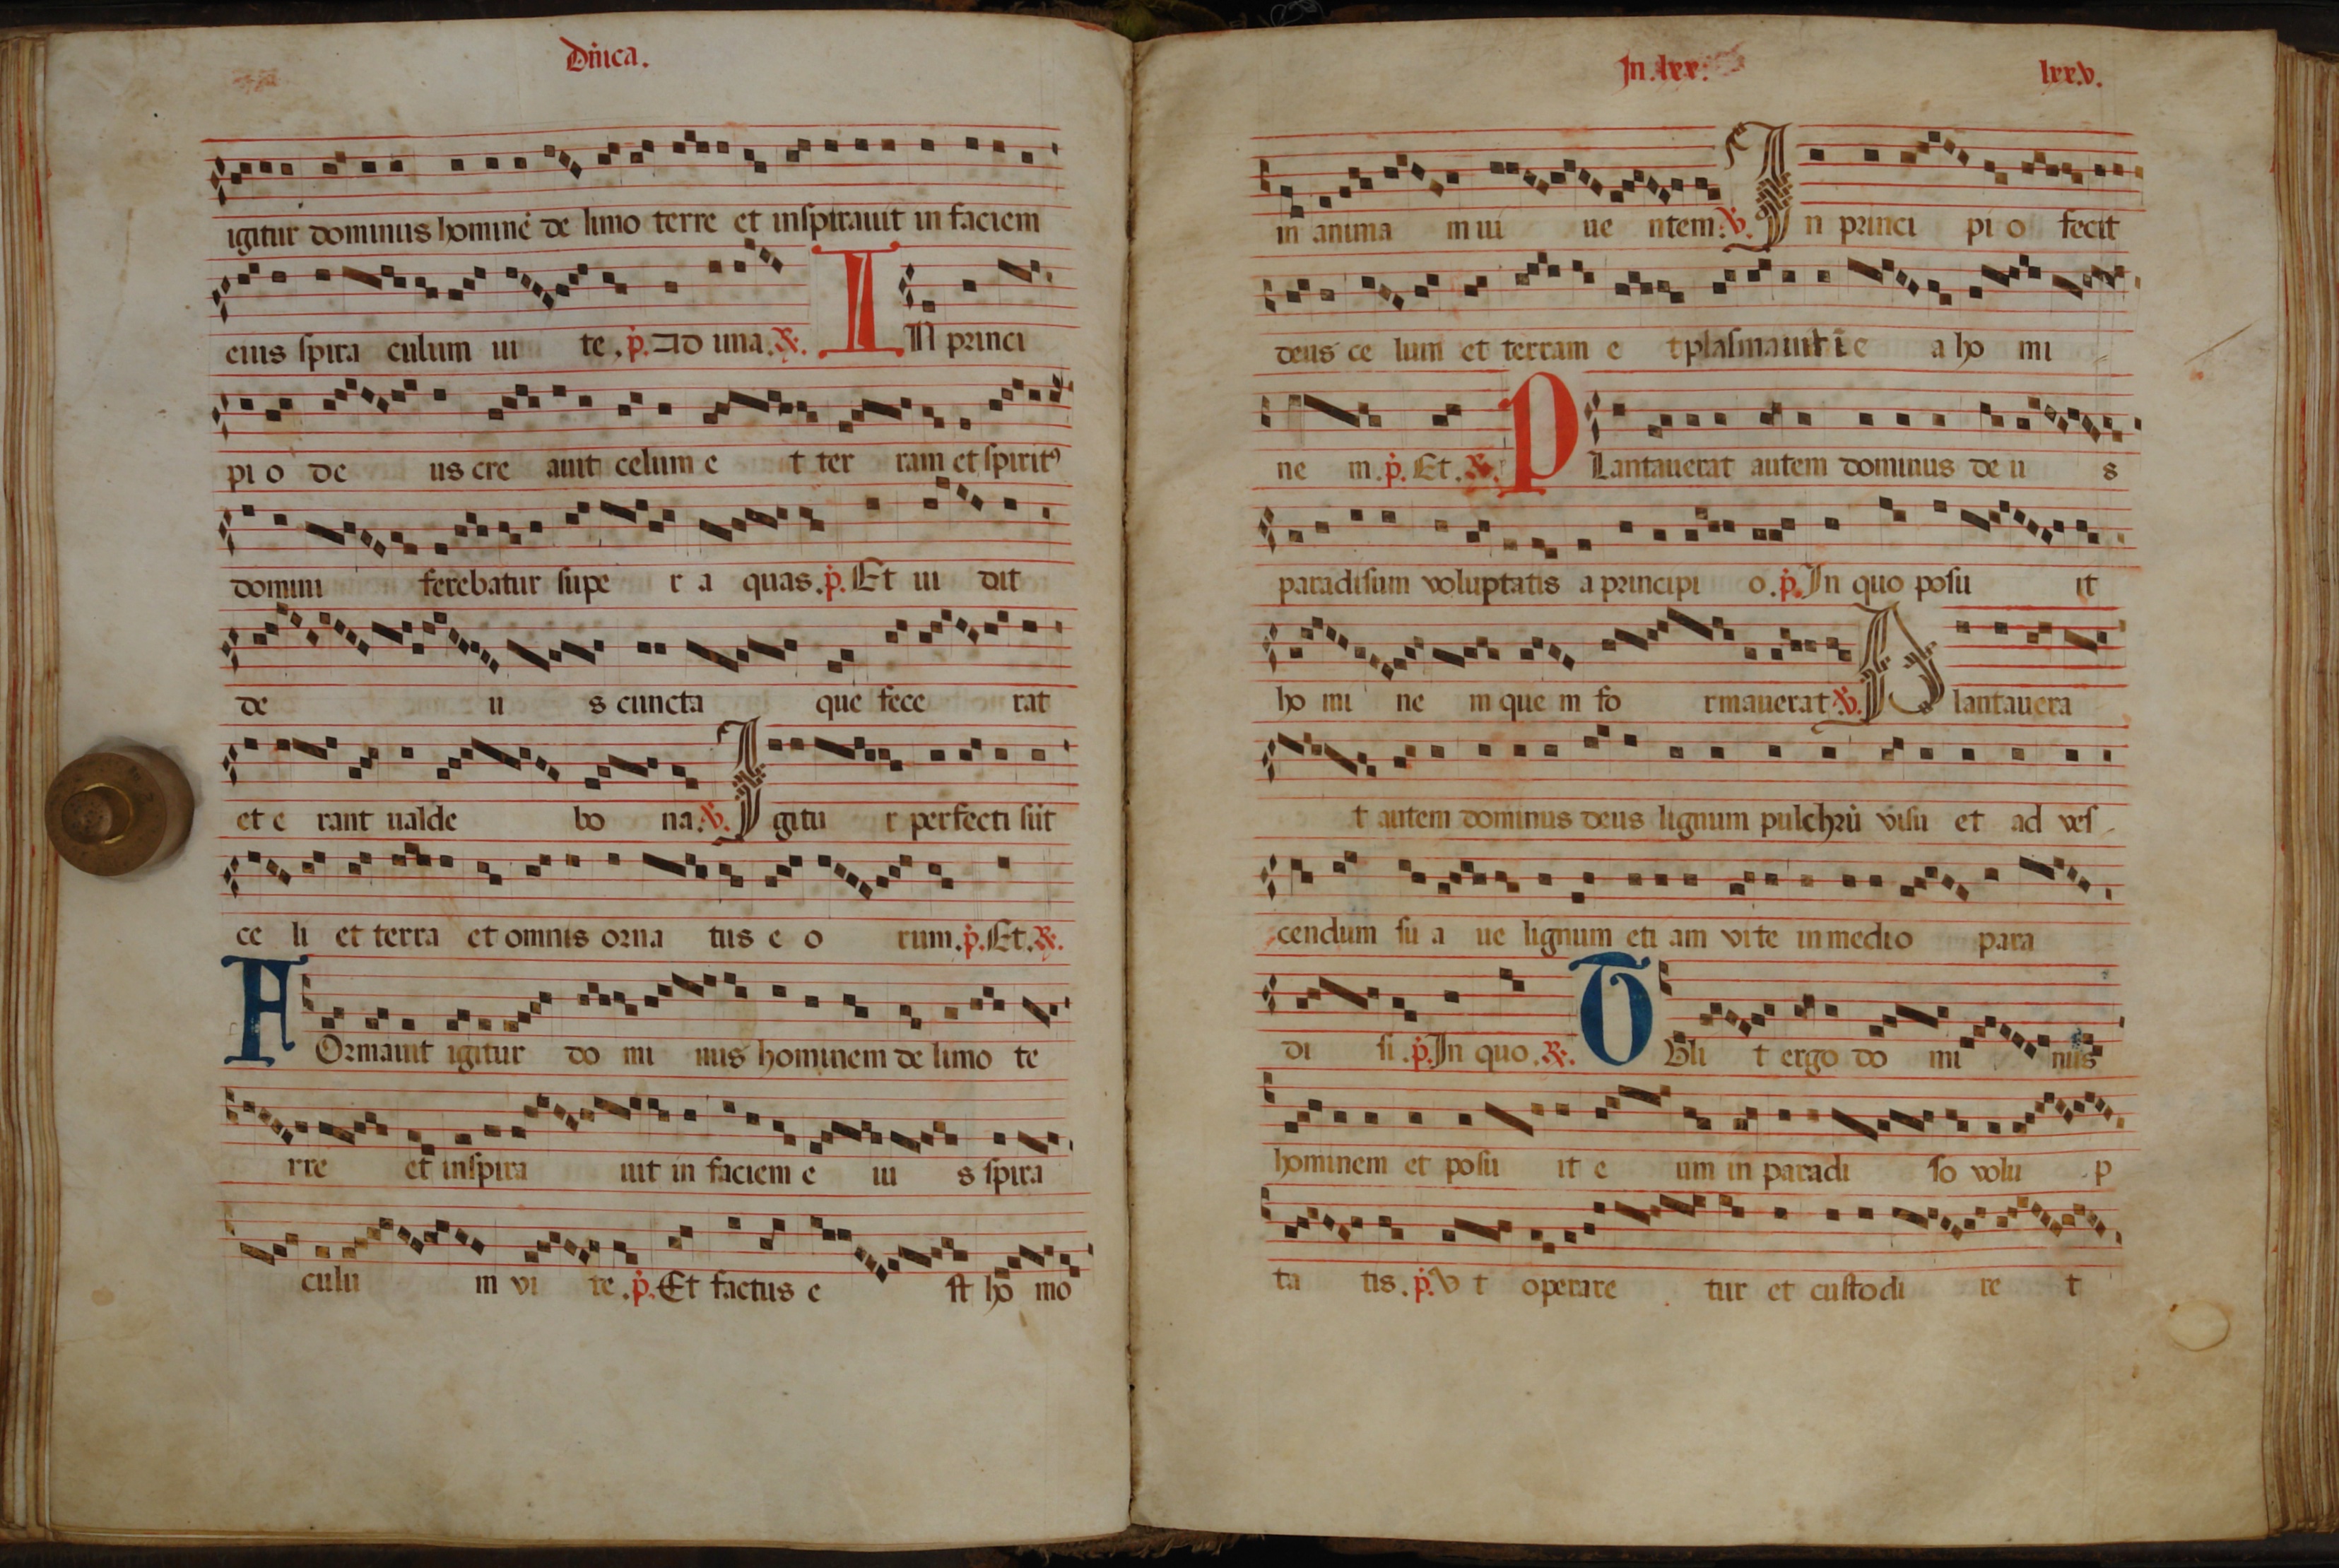 Dn̄ica.
igitur dominus hominē de limo terre et inspirauit in faciem
eius spira culum ui te. p̄. Ad una. ℟. IN princi
pi o de us cre auit celum e t ter ram et spirit⁹
domini ferebatur supe r a quas. p̄. Et ui dit
de u s cuncta que fece rat
et e rant ualde bo na. ℣. Igitu r perfecti sūt
ce li et terra et omnis orna tus e o rum. p̄. Et. ℟.
FOrmauit igitur do mi nus hominem de limo te
rre et inspira uit in faciem e iu s spira
culu m vi te. p̄. Et factus e st ho mo
In. lxx. lxx.v.
in anima m ui ue ntem. ℣. In princi pi o fecit
deus ce lum et terram e t plasmauit i e a ho mi
ne m. p̄. Et. ℟. PLantauerat autem dominus de u s
paradisum voluptatis a principi o. p̄. In quo posu it
ho mi ne m que m fo rmauerat. ℣. Plantauera
t autem dominus deus lignum pulchrū visu et ad ves
cendum su a ue lignum eti am vite in medio para
di si. p̄. In quo. ℟. TUli t ergo do mi nus
hominem et posu it e um in paradi so volu p
ta tis. p̄. V t operare tur et custodi re t